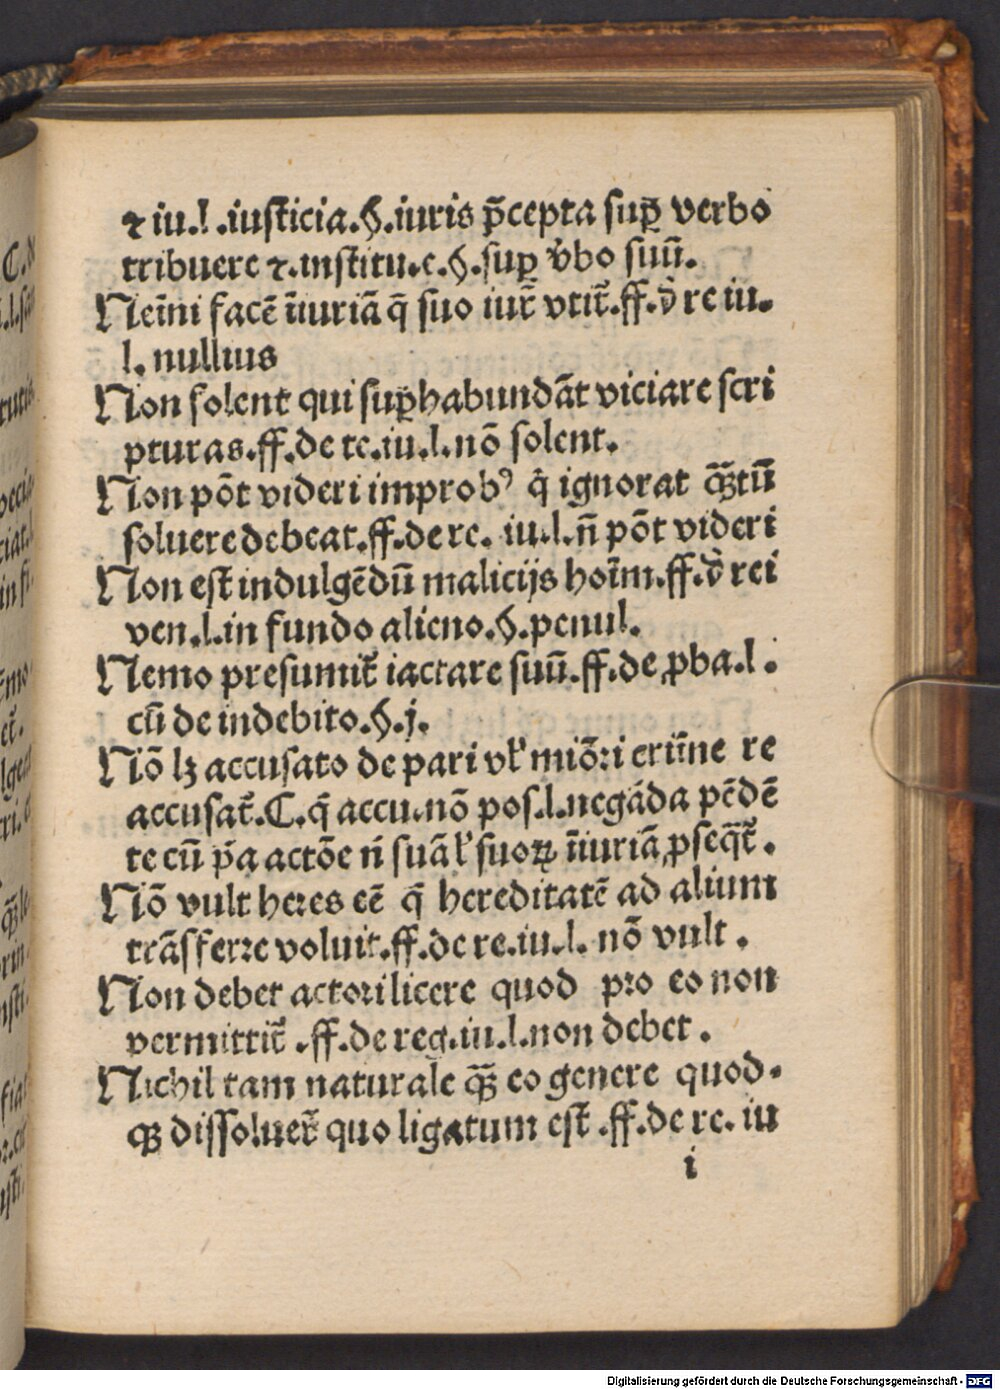 ⁊ iu.l.iusticia.§.iuris p̄cepta suꝑ verbo
tribuere ⁊.institu.e.§.suꝑ v̓bo suū.
Nemi̅ni facē iniuriā q̄ suo iur̄ vtit̄.ff.d̓ re iu.
l. nullius
Non solent qui suꝑhabundāt viciare scri
pturas.ff.de re.iu.l.nō solent.
Non pōt videri improbꝰ q̓ ignorat qꝫ̄tū
soluere debeat.ff.de re. iu.l.n̄ pōt videri
Non est indulgēdū malicijs hoīm.ff.d̓ rei
ven.l.in fundo alieno.§.penul.
Nemo presumit̄ iactare suū.ff.de ꝓba.l.
cū de indebito.§.j.
Nō lꝫ accusato de pari vl̓ miōri crimīne re
accusar̄.C.q̄ accu.nō pos.l.negāda pēdē
te cū p̄a actōe n̓ suā l̓ suoꝝ iniuriā ꝓseq̄t̄.
Nō vult heres eē q̄ hereditatē ad alium
trāsferre voluit.ff.de re.iu.l. nō vult.
Non debet actori licere quod pro eo non
permittit̄ .ff.de reg.iu.l.non debet.
Nichil tam naturale qꝫ̄ eo genere quod.
qꝫ dissoluer̄ quo ligatum est .ff.de re. iu
i
Digitalisierung gefördert durch die Deutsche Forschungsgemeinschaft - DFG